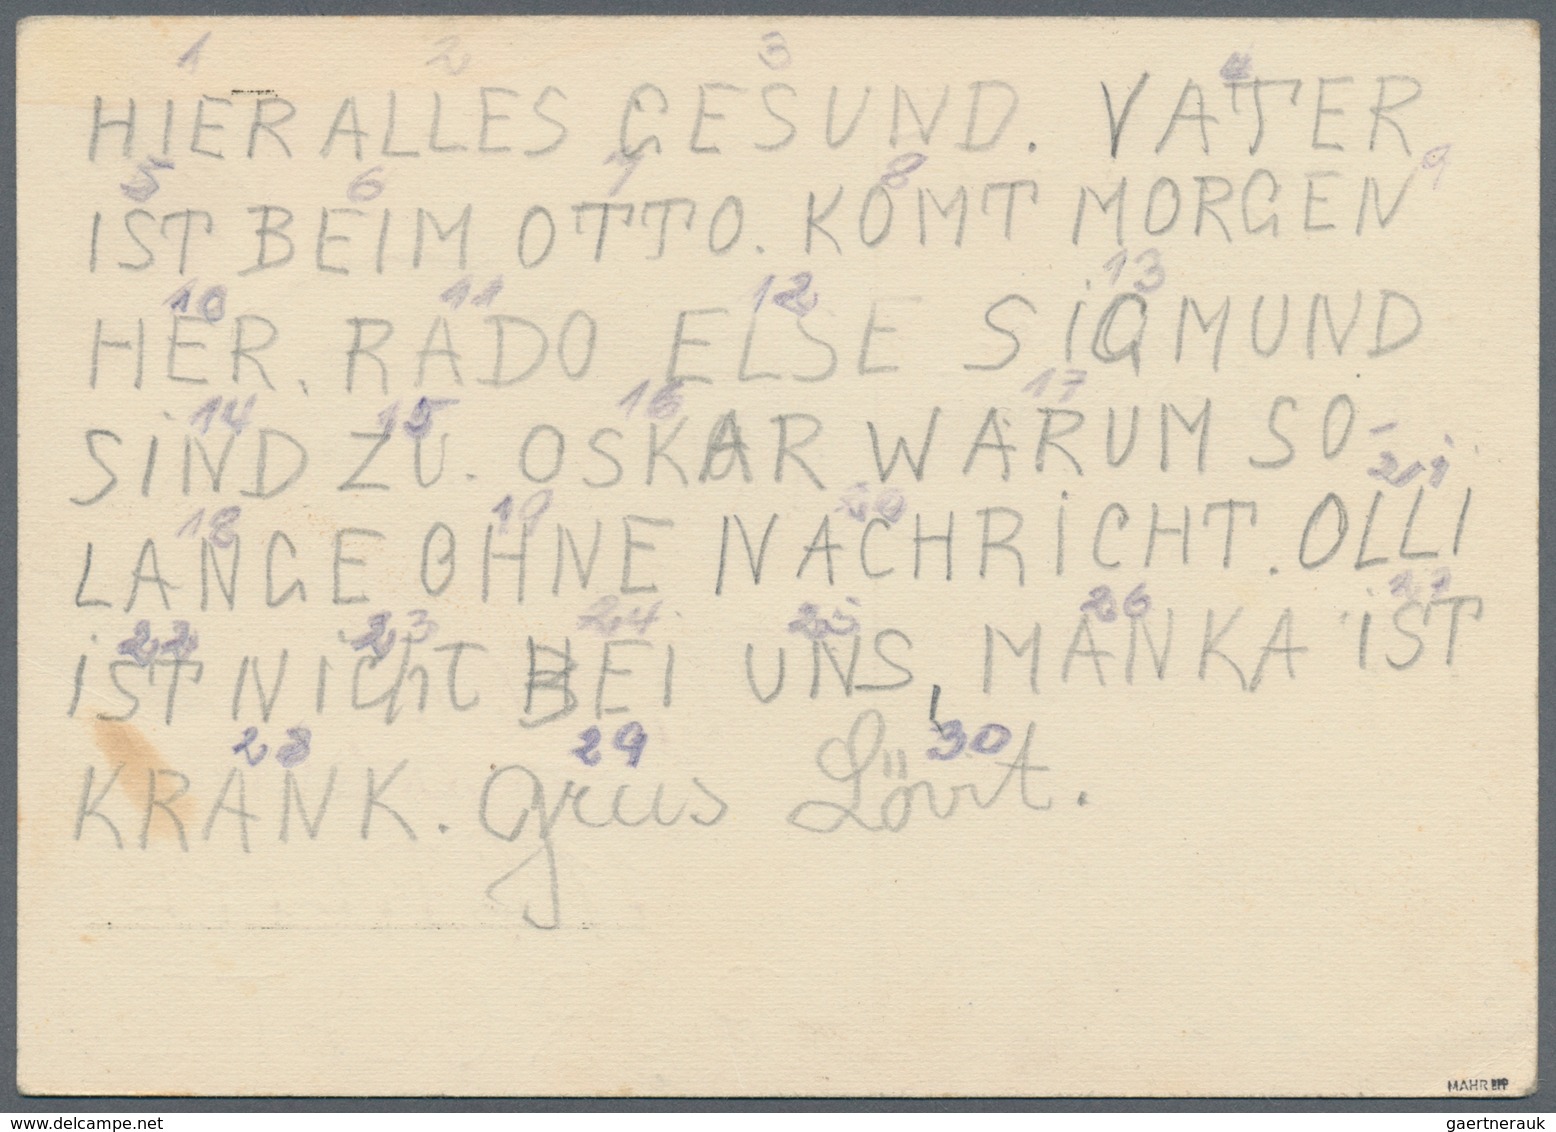 1 2 3 4
HIER ALLES GESUND. VATER
5 6 7 8 9
IST BEIM OTTO. KOMT MORGEN
10 11 12 13
HER. RADO ELSE SIGMUND
14 15 16 17
SIND ZU. OSKAR WARUM SO-
18 19 20 21
LANGE OHNE NACHRICHT. OLLI
22 23 24 25 26 27
IST NICHT BEI UNS, MANKA IST
28 29 30
KRANK. Grus
MAHR BPP
gaertnerauk